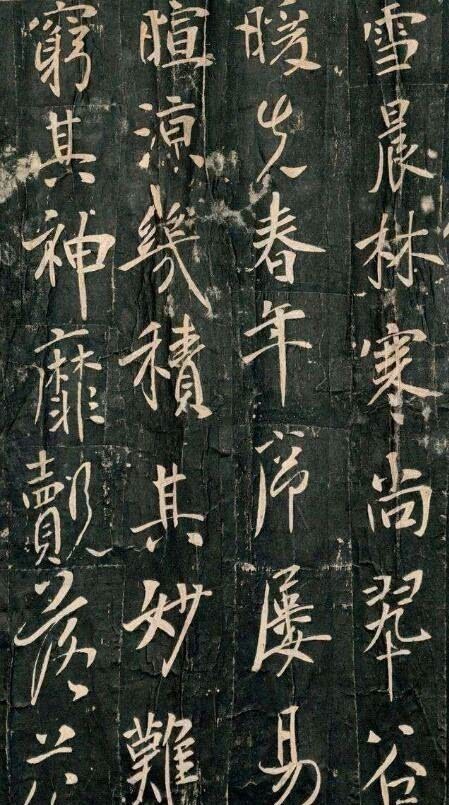 雪晨林寒尚翠谷
暖先春年序屢易
暄涼幾積其妙難
窮其神靡覿落花